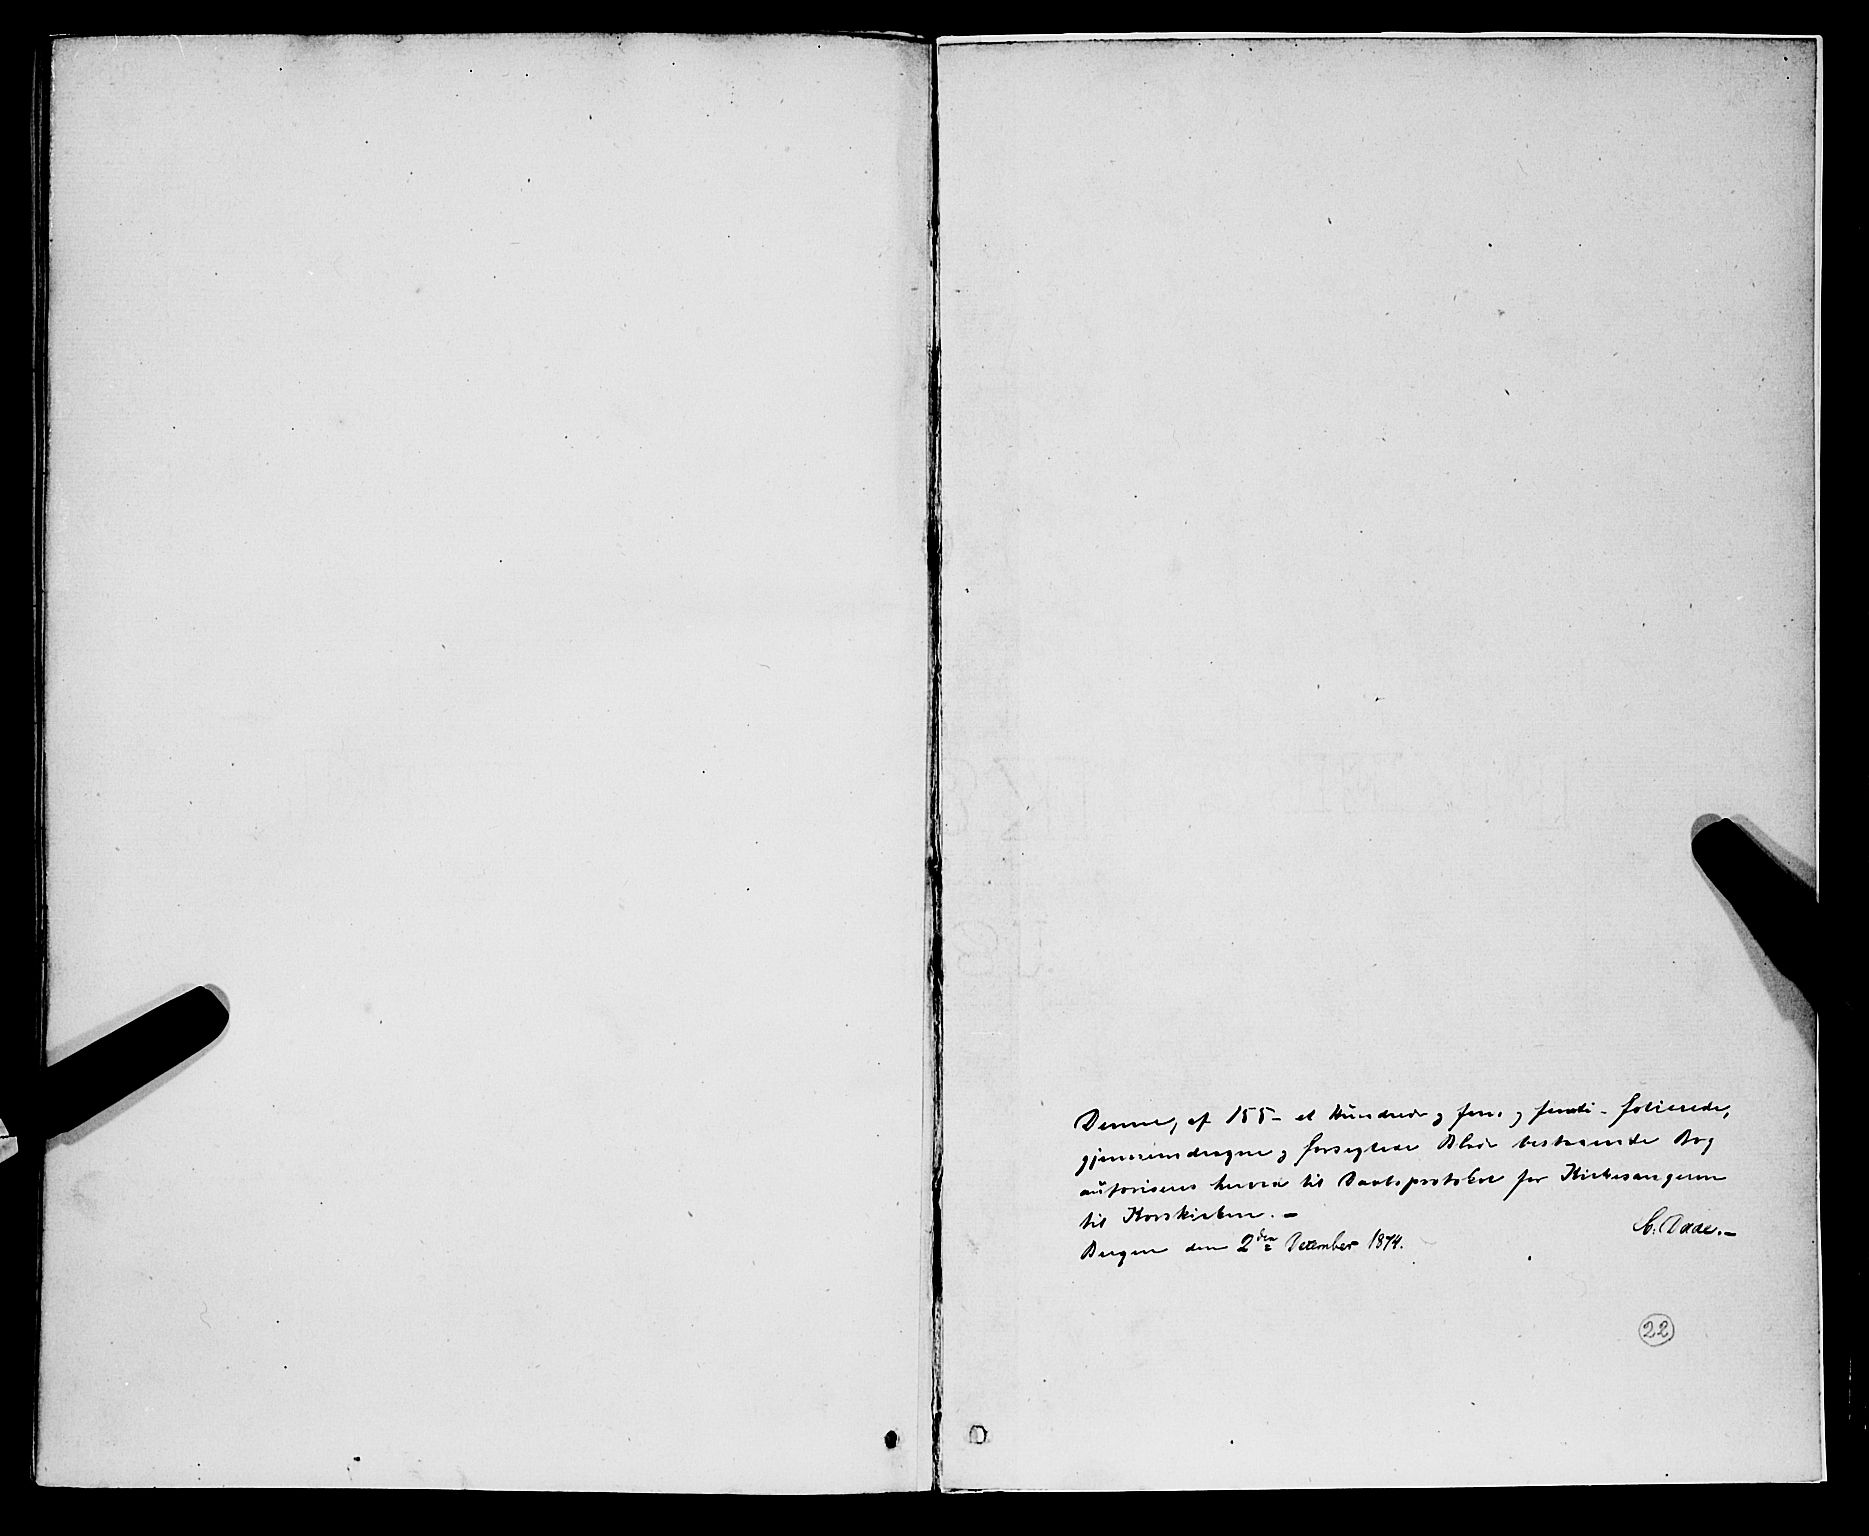 Denne, af 155 - et Hundrede og fem og femti - folierede,
gjennemdragne og forseglede Blade bestaaende Bog
autoriseres herved til Daabsprotokol for Kirkesangeren
til Korskirken. -
C. Daae. -
Bergen den 2den December 1874.
22